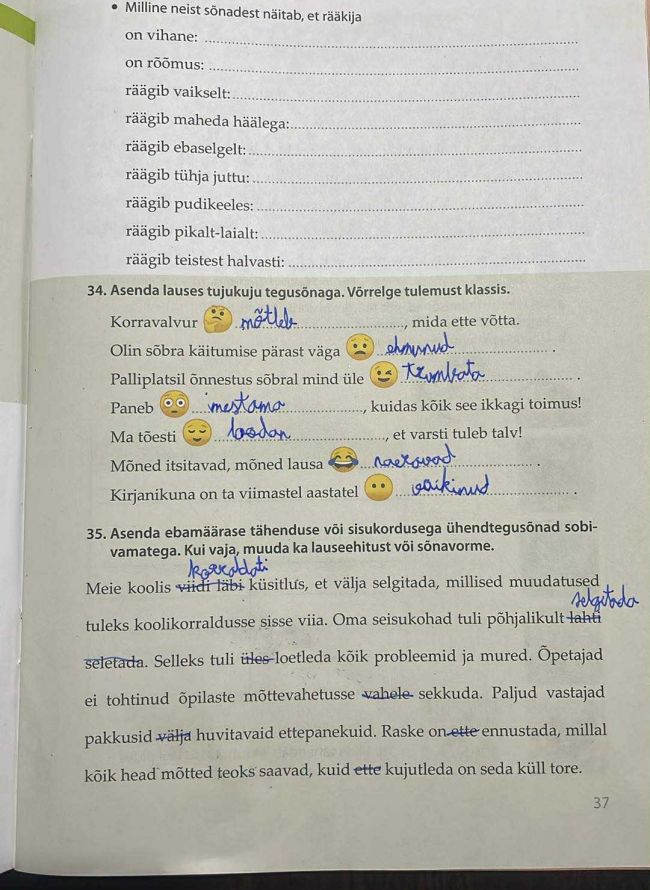 • Milline neist sõnadest näitab, et rääkija
on vihane:
on rõõmus:
räägib vaikselt:
räägib maheda häälega:
räägib ebaselgelt:
räägib tühja juttu:
räägib pudikeeles:
räägib pikalt-laialt:
räägib teistest halvasti:
34. Asenda lauses tujukuju tegusõnaga. Võrrelge tulemust klassis.
Korravalvur mõtleb, mida ette võtta.
Olin sõbra käitumise pärast väga ehmunud.
Palliplatsil õnnestus sõbral mind üle trumbata.
Paneb imestama, kuidas kõik see ikkagi toimus!
Ma tõesti loodan, et varsti tuleb talv!
Mõned itsitavad, mõned lausa naeravad.
Kirjanikuna on ta viimastel aastatel vaikinud.
35. Asenda ebamäärase tähenduse või sisukordusega ühendtegusõnad sobi-
vamatega. Kui vaja, muuda ka lauseehitust või sõnavorme.
korraldati
Meie koolis viidi läbi küsitlus, et välja selgitada, millised muudatused
selgitada
tuleks koolikorraldusse sisse viia. Oma seisukohad tuli põhjalikult lahti
seletada. Selleks tuli üles loetleda kõik probleemid ja mured. Õpetajad
ei tohtinud õpilaste mõttevahetusse vahele sekkuda. Paljud vastajad
pakkusid välja huvitavaid ettepanekuid. Raske on ette ennustada, millal
kõik head mõtted teoks saavad, kuid ette kujutleda on seda küll tore.
37